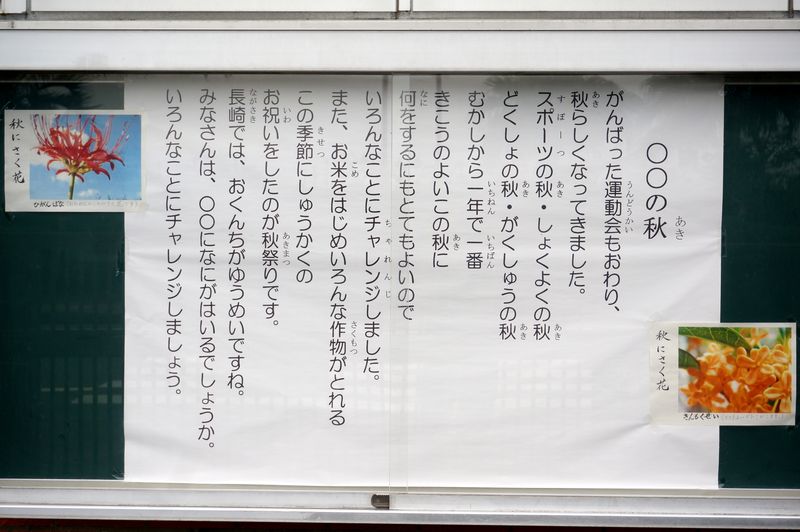 〇〇の秋
がんばった運動会もおわり、
秋らしくなってきました。
スポーツの秋・しょくよくの秋
どくしょの秋・がくしゅうの秋
むかしから一年で一番
きこうのよいこの秋に
何をするにもとてもよいので
いろんなことにチャレンジしました。
また、お米をはじめいろんな作物がとれる
この季節にしゅうかくの
お祝いをしたのが秋祭りです。
長崎では、おくんちがゆうめいですね。
みなさんは、〇〇になにがはいるでしょうか。
いろんなことにチャレンジしましょう。
秋にさく花
きんもくせい
秋にさく花
ひがんばな